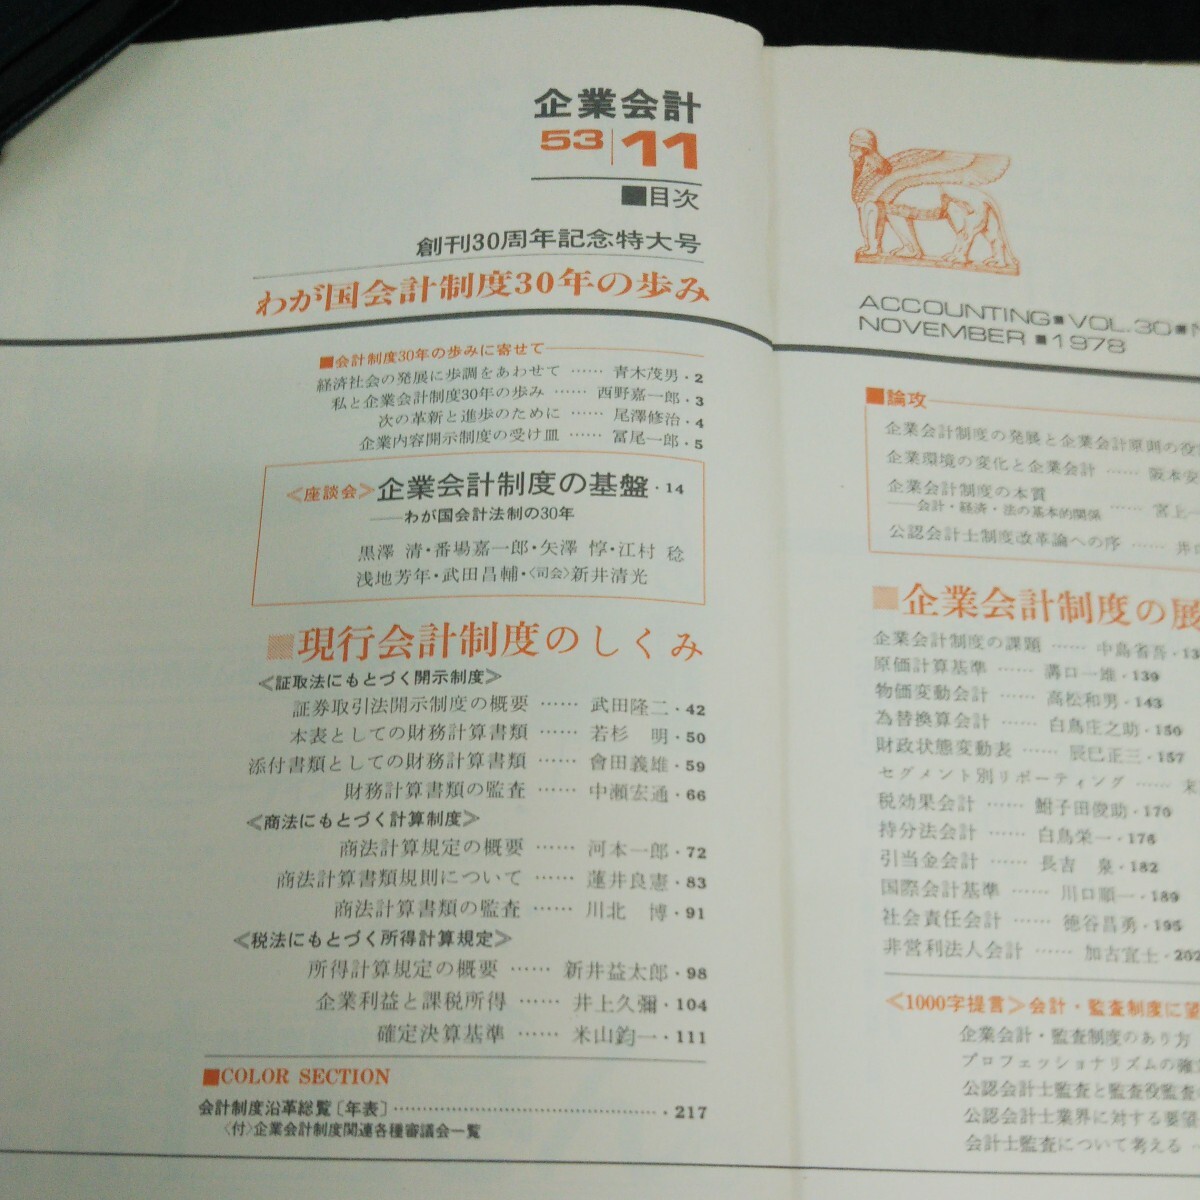 企業会計
53|11
■目次
創刊30周年記念特大号
わが国会計制度30年の歩み
■会計制度30年の歩みに寄せて
経済社会の発展に歩調をあわせて …… 青木茂男・2
私と企業会計制度30年の歩み …… 西野嘉一郎・3
次の革新と進歩のために …… 尾澤修治・4
企業内容開示制度の受け皿 …… 冨尾一郎・5
〈座談会〉企業会計制度の基盤・14
――わが国会計法制の30年
黒澤 清・番場嘉一郎・矢澤 惇・江村 稔
浅地芳年・武田昌輔・〈司会〉新井清光
■現行会計制度のしくみ
≪証取法にもとづく開示制度≫
証券取引法開示制度の概要 …… 武田隆二・42
本表としての財務計算書類 …… 若杉 明・50
添付書類としての財務計算書類 …… 會田義雄・59
財務計算書類の監査 …… 中瀬宏通・66
≪商法にもとづく計算制度≫
商法計算規定の概要 …… 河本一郎・72
商法計算書類規則について …… 蓮井良憲・83
商法計算書類の監査 …… 川北 博・91
≪税法にもとづく所得計算規定≫
所得計算規定の概要 …… 新井益太郎・98
企業利益と課税所得 …… 井上久彌・104
確定決算基準 …… 米山鈞一・111
■COLOR SECTION
会計制度沿革総覧〔年表〕……・217
〈付〉企業会計制度関連各種審議会一覧
ACCOUNTING■VOL.30■
NOVEMBER ■1978
■論攻
企業会計制度の発展と企業会計原則の役
企業環境の変化と企業会計 …… 阪本安
企業会計制度の本質
――会計・経済・法の基本的関係 …… 宮上一
公認会計士制度改革論への序 …… 井
■企業会計制度の展
企業会計制度の課題 …… 中島省吾・13
原価計算基準 …… 溝口一雄・139
物価変動会計 …… 高松和男・143
為替換算会計 …… 白鳥庄之助・150
財政状態変動表 …… 辰巳正三・157
セグメント別リポーティング ……
税効果会計 …… 鮒子田俊助・170
持分法会計 …… 白鳥栄一・176
引当金会計 …… 長吉 泉・182
国際会計基準 …… 川口順一・189
社会責任会計 …… 徳谷昌勇・195
非営利法人会計 …… 加古宜士・202
≪1000字提言≫会計・監査制度に望
企業会計・監査制度のあり方
プロフェッショナリズムの確
公認会計士監査と監査役監査
公認会計士業界に対する要望
会計士監査について考える